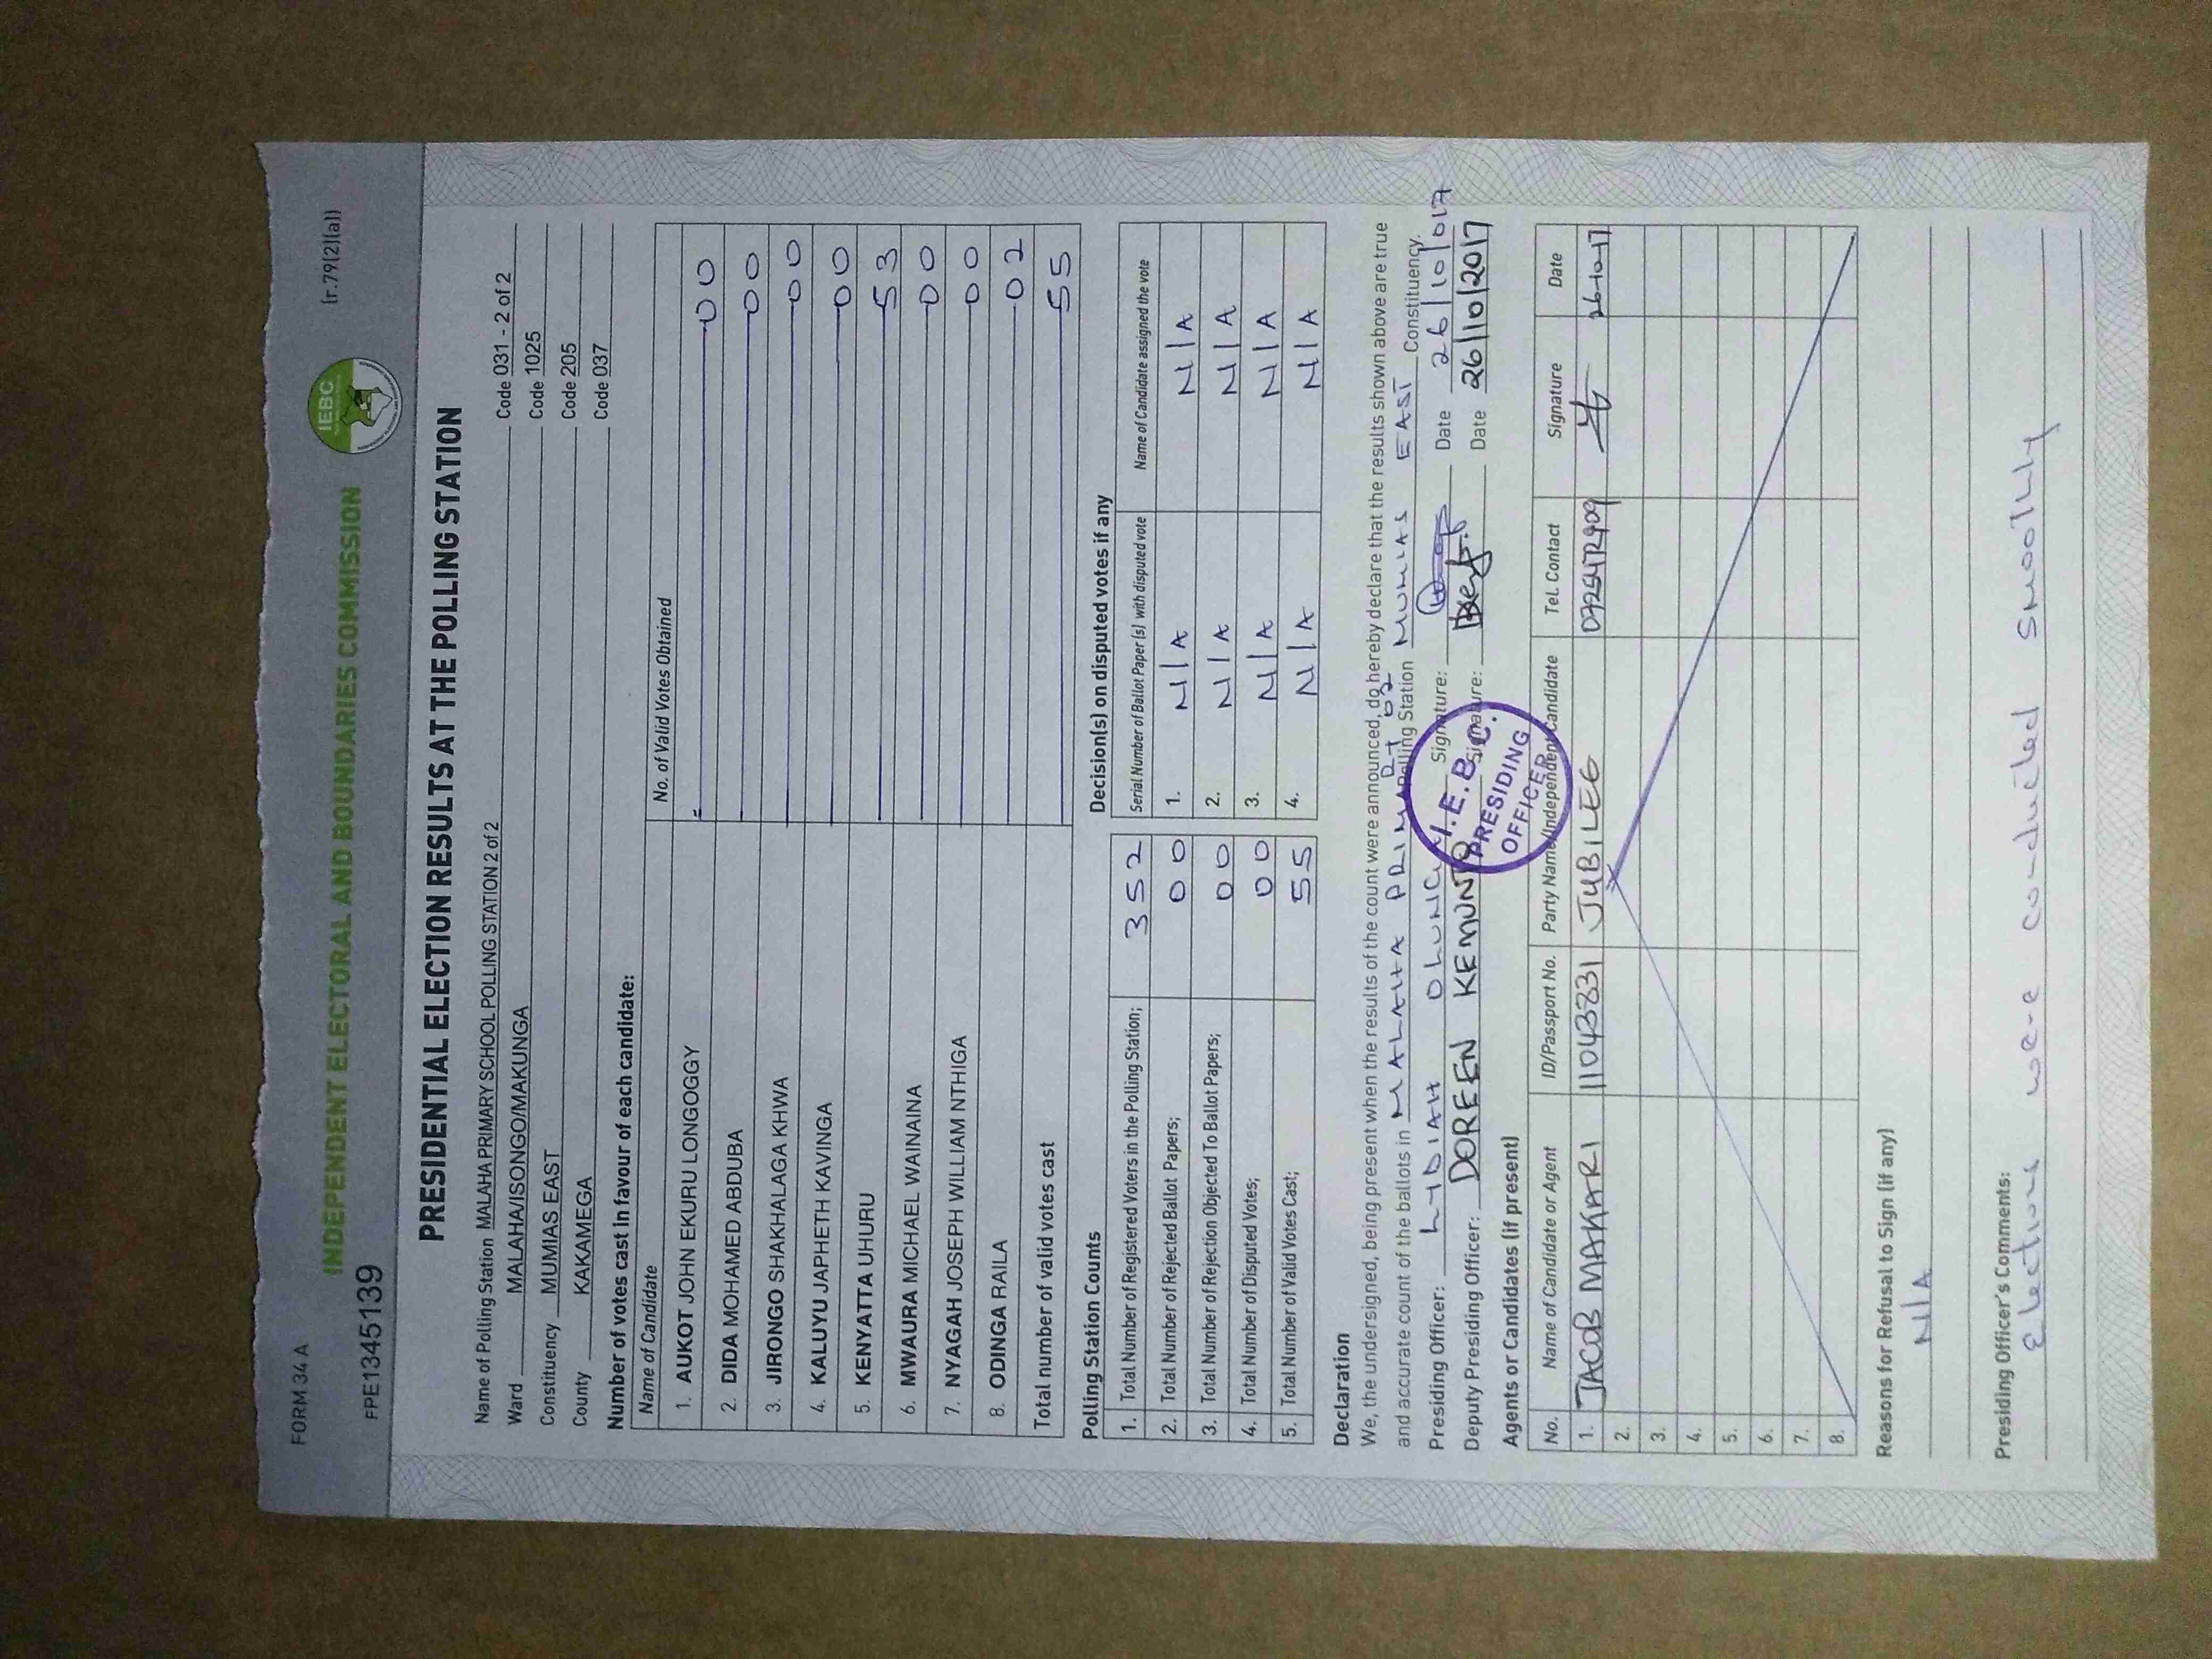 FORM 34 A
(r.79(2)(a))
IEBC
INDEPENDENT ELECTORAL AND BOUNDARIES COMMISSION
FPE1345139
PRESIDENTIAL ELECTION RESULTS AT THE POLLING STATION
Name of Polling Station MALAHA PRIMARY SCHOOL POLLING STATION 2 of 2 Code 031 - 2 of 2
Ward MALAHA/ISONGO/MAKUNGA Code 1025
Constituency MUMIAS EAST Code 205
County KAKAMEGA Code 037
Number of votes cast in favour of each candidate:
Name of Candidate No. of Valid Votes Obtained
1. AUKOT JOHN EKURU LONGOGGY 00
2. DIDA MOHAMED ABDUBA 00
3. JIRONGO SHAKHALAGA KHWA 00
4. KALUYU JAPHETH KAVINGA 00
5. KENYATTA UHURU 53
6. MWAURA MICHAEL WAINAINA 00
7. NYAGAH JOSEPH WILLIAM NTHIGA 00
8. ODINGA RAILA 02
Total number of valid votes cast 55
Polling Station Counts
1. Total Number of Registered Voters in the Polling Station; 352
2. Total Number of Rejected Ballot Papers; 00
3. Total Number of Rejection Objected To Ballot Papers; 00
4. Total Number of Disputed Votes; 00
5. Total Number of Valid Votes Cast; 55
Decision(s) on disputed votes if any
Serial Number of Ballot Paper (s) with disputed vote Name of Candidate assigned the vote
1. N/A N/A
2. N/A N/A
3. N/A N/A
4. N/A N/A
Declaration
We, the undersigned, being present when the results of the count were announced, do hereby declare that the results shown above are true
and accurate count of the ballots in MALAHA PRIMARY Polling Station MUMIAS EAST Constituency.
Presiding Officer: LYDIAH Signature: Date 26/10/017
Deputy Presiding Officer: DOREEN KEMUNTO Signature: Date 26/10/2017
I.E.B.C.
PRESIDING
OFFICER
Agents or Candidates (if present)
No. Name of Candidate or Agent ID/Passport No. Party Name/Independent Candidate Tel. Contact Signature Date
1. JACOB MAKARI 11043831 JUBILEE
2.
3.
4.
5.
6.
7.
8.
Reasons for Refusal to Sign (if any)
N/A
Presiding Officer's Comments:
Elections were conducted smoothly